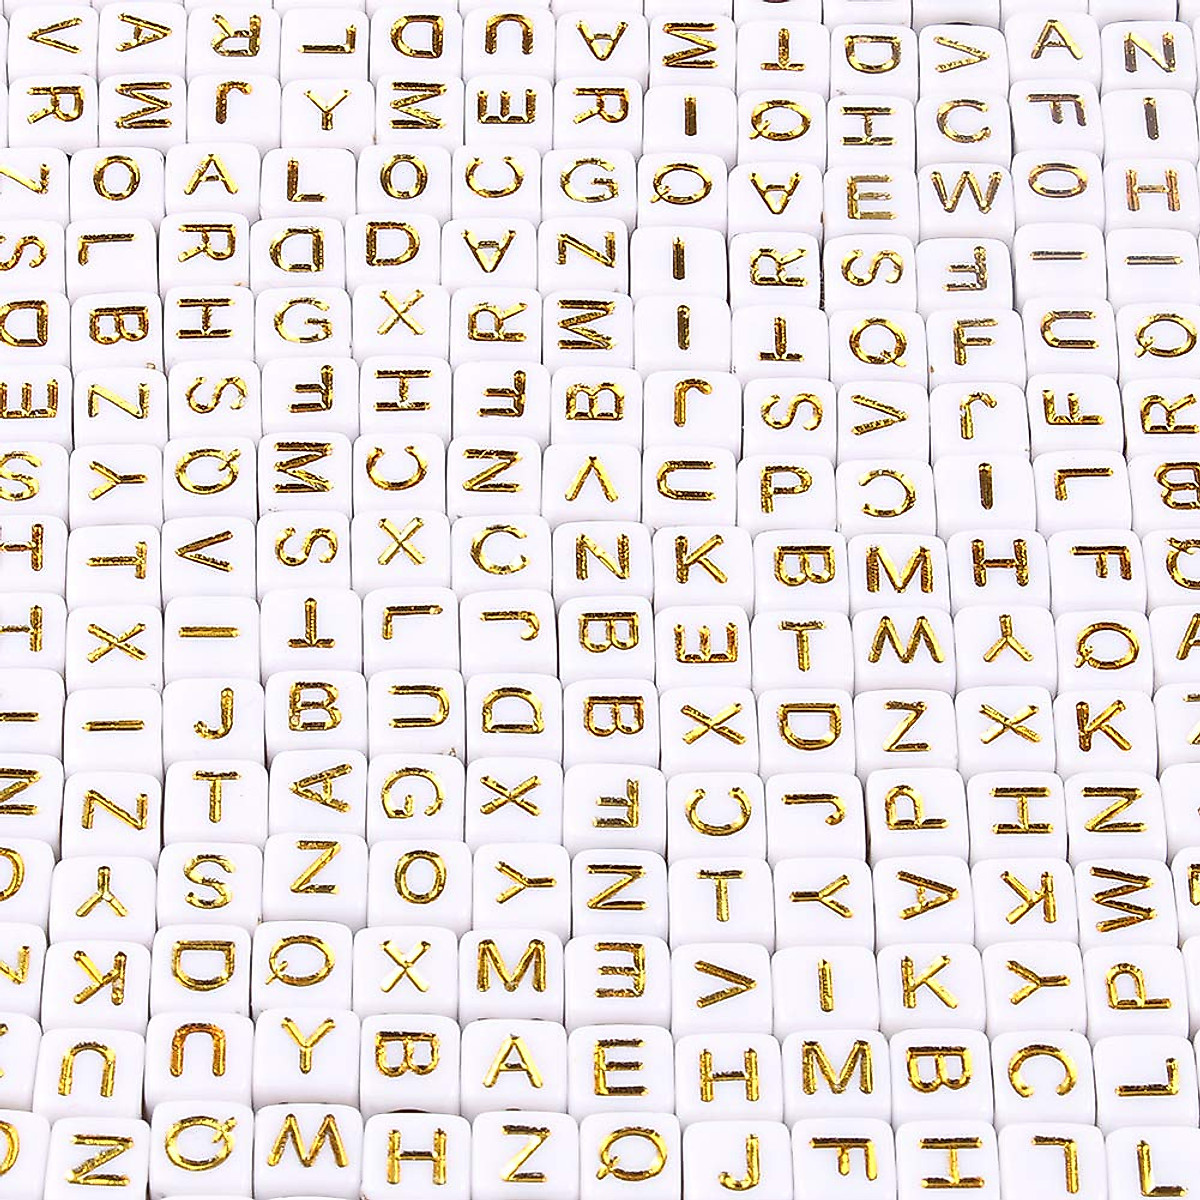 V A R L D U A M T D V A N
R M J Y M E R I Q H C F I
Z O A L O C G Q A E W O H
S L R D D A Z I R S F I I
D B H G X R M I T Q F U Q
E Z S F H F B J S V J F R
S Y Q M C N V U P C I L B
T T V S X C Z K B M H F Q
T X I T L J B E T W Y Q A
I I J B U D B X D Z X K
N Z T A G X F C J P H N
O Y S Z O Y N T Y A K M
K D Q X M E V I K Y P
U U Y B A E H M B C L
N Q W H Z Q J F H L L